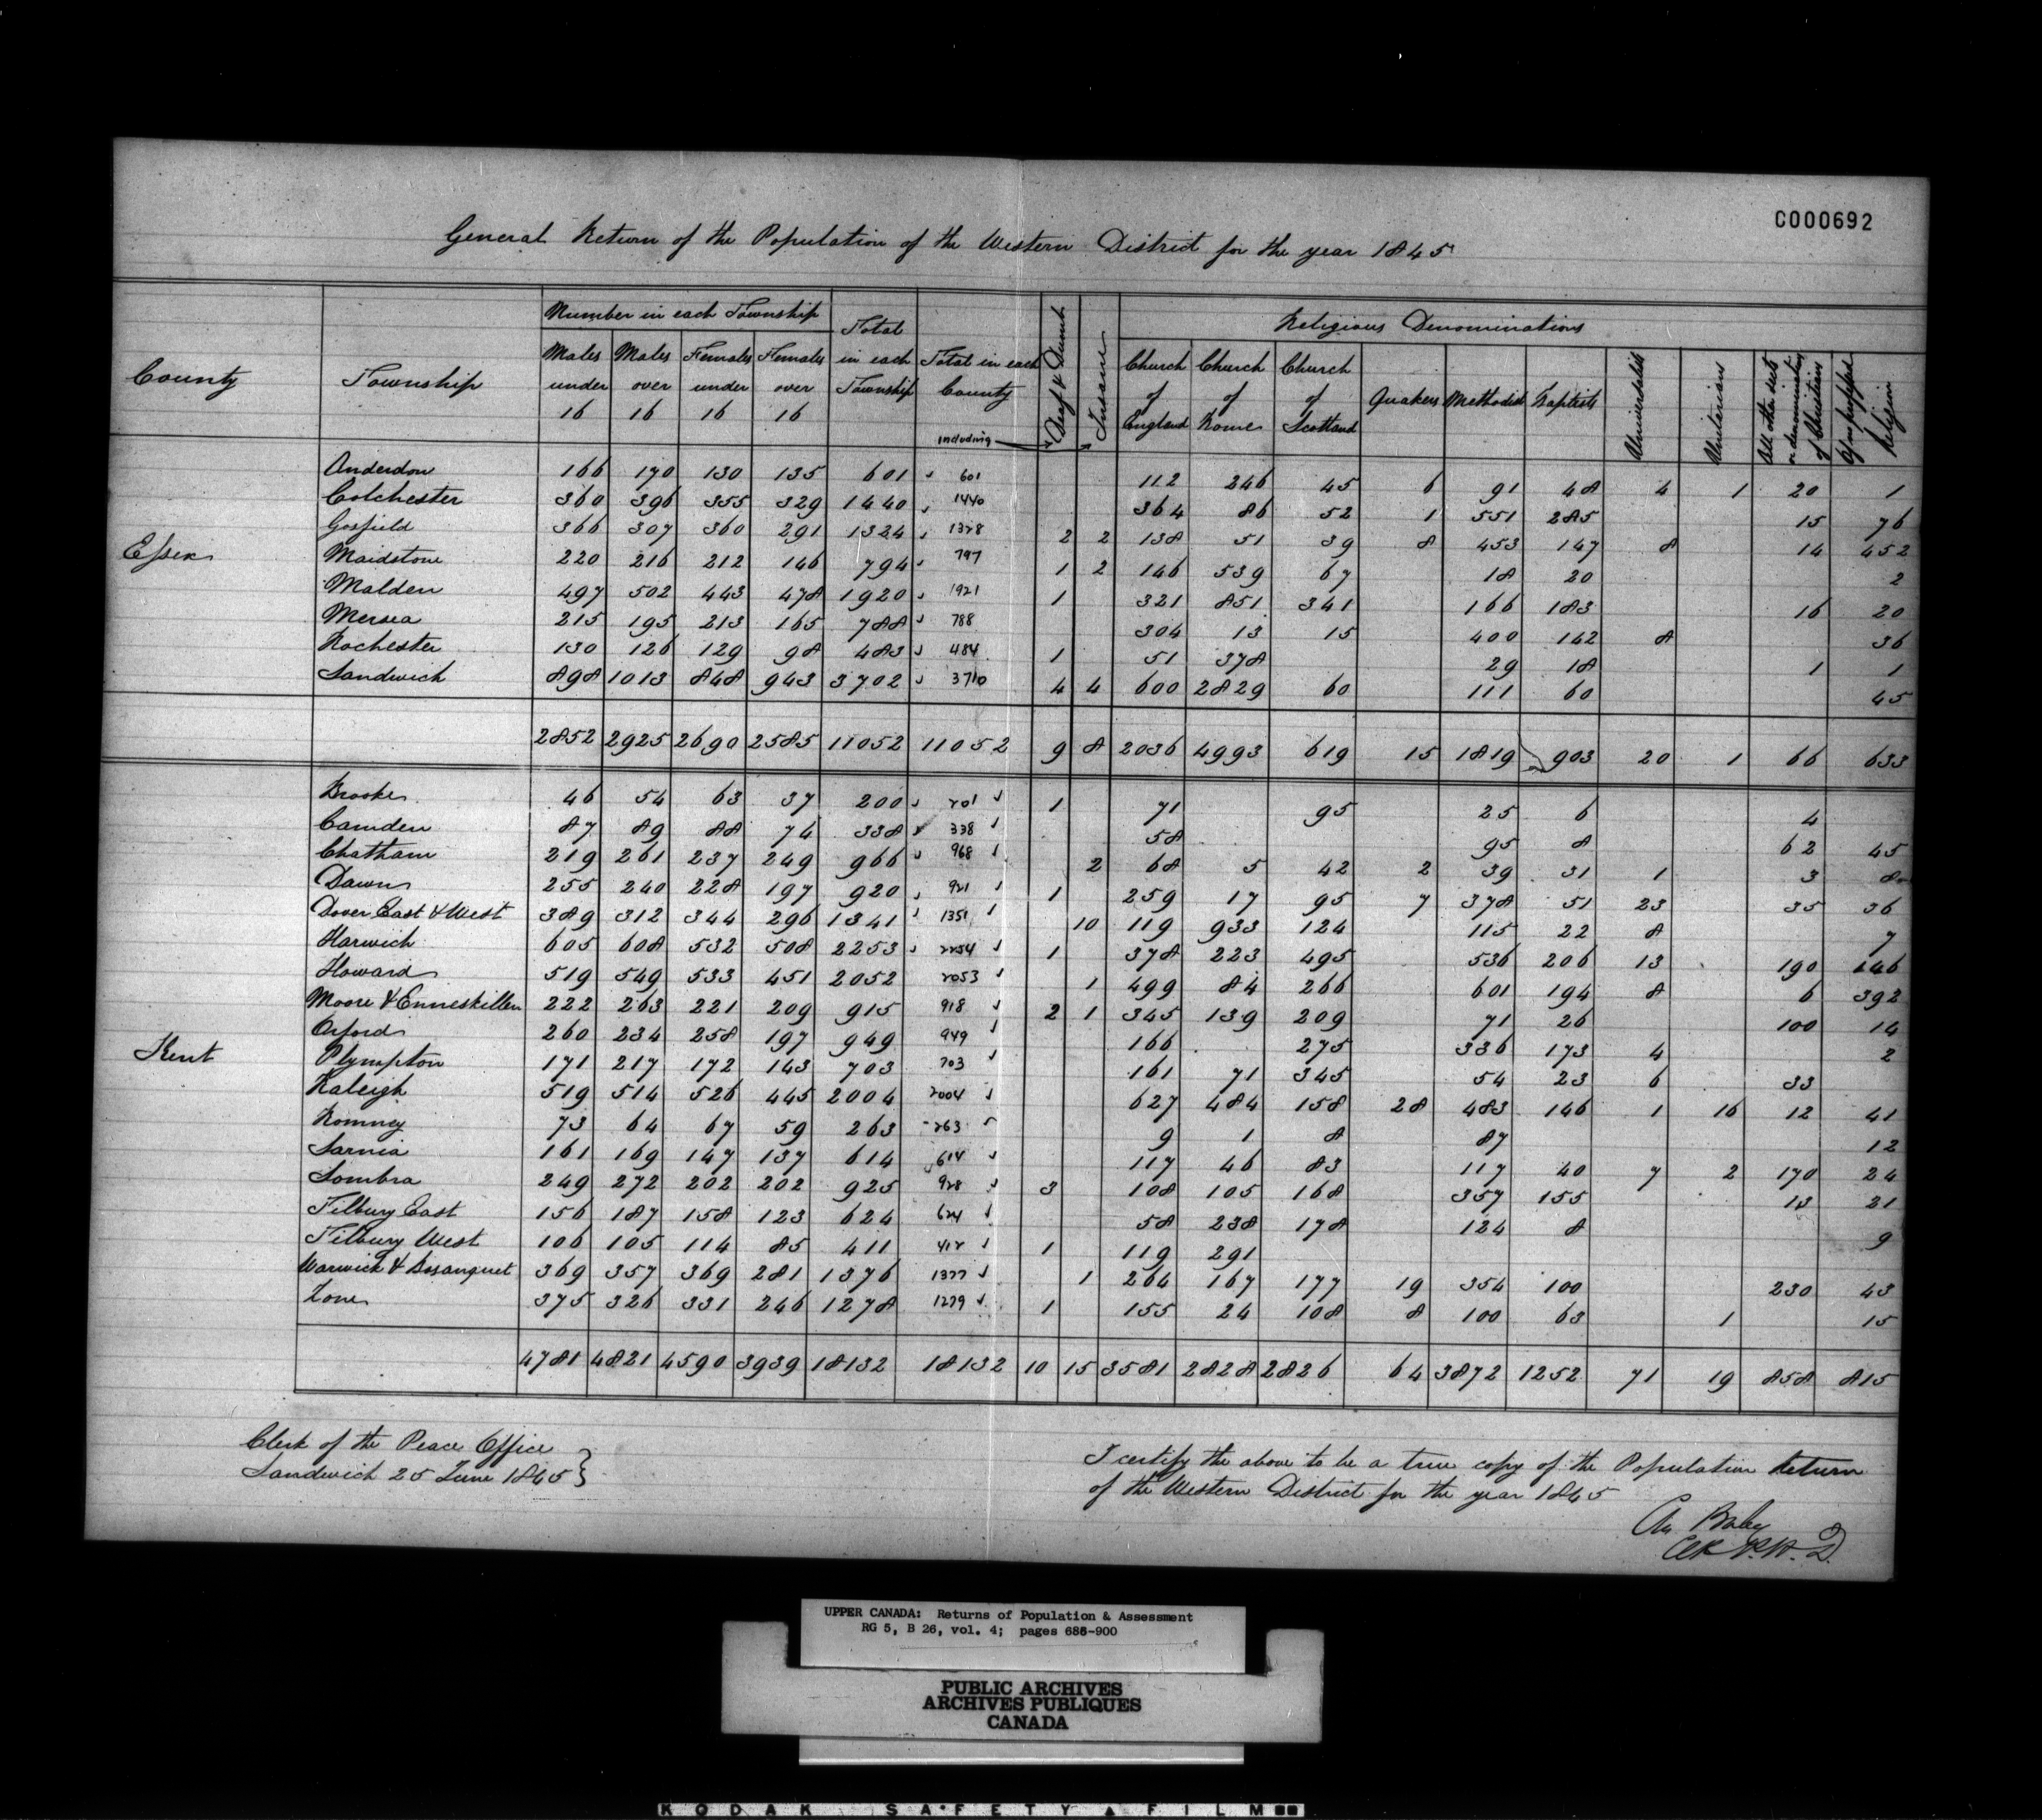 C000692
General Return of the Population of the Western District for the year 1845
County Township Number in each Township Total in each Township Total in each County Deaf & Dumb Insane Religious Denominations
Males under 16 Males over 16 Females under 16 Females over 16 including Church of England Church of Rome Church of Scotland Quakers Methodist Baptists Universalists Unitarians All other sects or denominations of Christians Of no professed Religion
Essex
Anderdon 166 170 130 135 601 601 112 246 45 6 91 48 4 1 20 1
Colchester 360 396 355 329 1440 1440 364 86 52 1 551 285 15 76
Gosfield 366 307 360 291 1324 1328 2 2 138 51 39 8 453 147 8 14 452
Maidstone 220 216 212 146 794 797 1 2 146 539 67 18 20 2
Malden 497 502 443 478 1920 1921 1 321 851 341 166 183 16 20
Mersea 215 195 213 165 788 788 304 13 15 400 142 8 36
Rochester 130 126 129 98 483 484 1 51 378 29 18 1 1
Sandwich 898 1013 848 943 3702 3710 4 4 600 2829 60 111 60 45
2852 2925 2690 2585 11052 11052 9 8 2036 4993 619 15 1819 903 20 1 66 633
Kent
Brooke 46 54 63 37 200 201 1 71 95 25 6 4
Camden 87 89 88 74 338 338 58 95 8 62 45
Chatham 219 261 237 249 966 968 2 68 5 42 2 39 31 1 3 8
Dawn 255 240 228 197 920 921 1 259 17 95 7 378 51 23 35 36
Dover East & West 389 312 344 296 1341 1351 10 119 933 124 115 22 8 7
Harwich 605 608 532 508 2253 2254 1 378 223 495 536 206 13 190 146
Howard 519 549 533 451 2052 2053 1 499 84 266 601 194 8 6 392
Moore & Enneskillen 222 263 221 209 915 918 2 1 345 139 209 71 26 100 14
Orford 260 234 258 197 949 949 166 275 336 173 4 2
Plympton 171 217 172 143 703 703 161 71 345 54 23 6 33
Raleigh 519 514 526 445 2004 2004 627 484 158 28 483 146 1 16 12 41
Romney 73 64 67 59 263 263 9 1 8 87 12
Sarnia 161 169 147 137 614 614 117 46 83 117 40 7 2 170 24
Sombra 249 272 202 202 925 928 3 108 105 168 357 155 13 21
Tilbury East 156 187 158 123 624 624 58 238 178 124 8 9
Tilbury West 106 105 114 85 411 412 1 119 291
Warwick & Bosanquet 369 357 369 281 1376 1377 1 264 167 177 19 354 100 230 43
Zone 375 326 331 246 1278 1279 1 155 24 108 8 100 63 1 15
4781 4821 4590 3939 18132 18132 10 15 3581 2828 2826 64 3872 1252 71 19 858 815
Clerk of the Peace Office
Sandwich 25 June 1845
I certify the above to be a true copy of the Population Return
of the Western District for the year 1845
Baby
UPPER CANADA: Returns of Population & Assessment
RG 5, B 26, vol. 4; pages 686-900
PUBLIC ARCHIVES
ARCHIVES PUBLIQUES
CANADA
KODAK SAFETY FILM